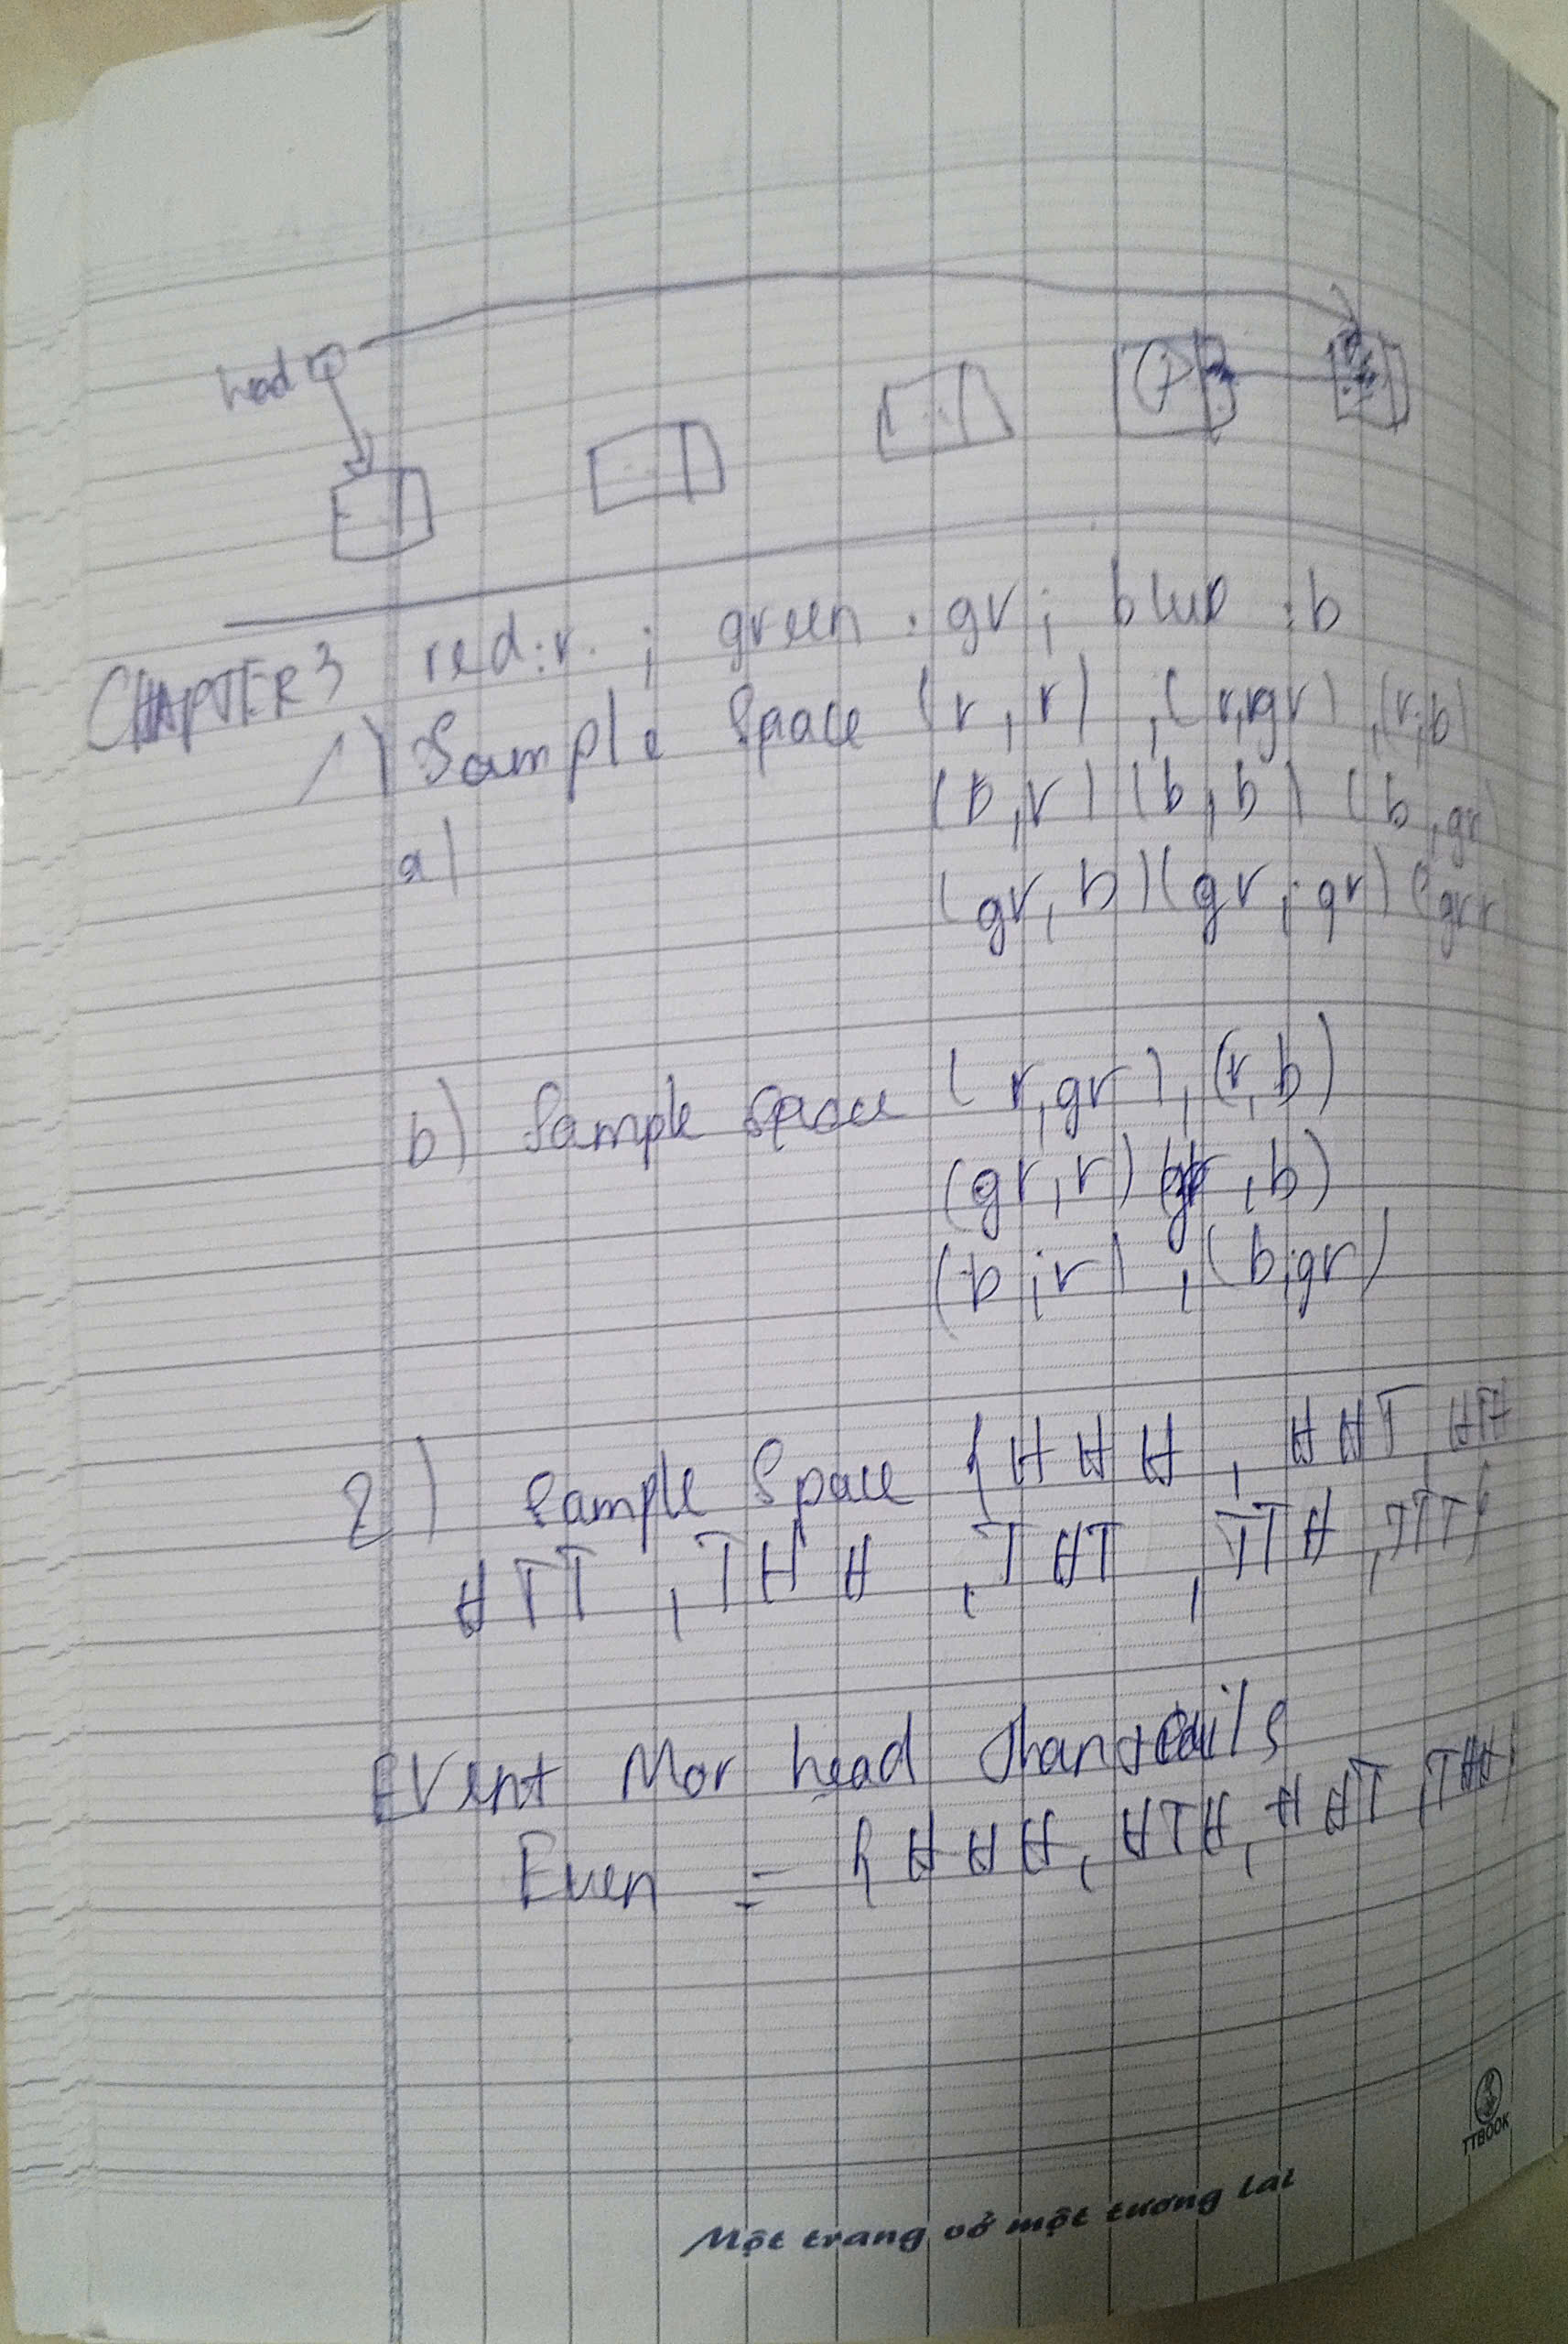 head
CHAPTER 3 red: r. ; green : gr ; blue : b
1) Sample Space (r, r) , (r, gr) , (r; b)
a) (b, r) (b, b) (b, gr)
(gr, b) (gr, gr) (gr r)
b) Sample space (r, gr), (r, b)
(gr, r) (gr, b)
(b ; r) , (b; gr)
2) Sample Space {HHH, HHT, HTH
HTT, THH, THT, TTH, TTT}
Event Mor head than tails
Even = {HHH, HTH, HHT, THH}
TTBOOK
Một trang vở một tương lai